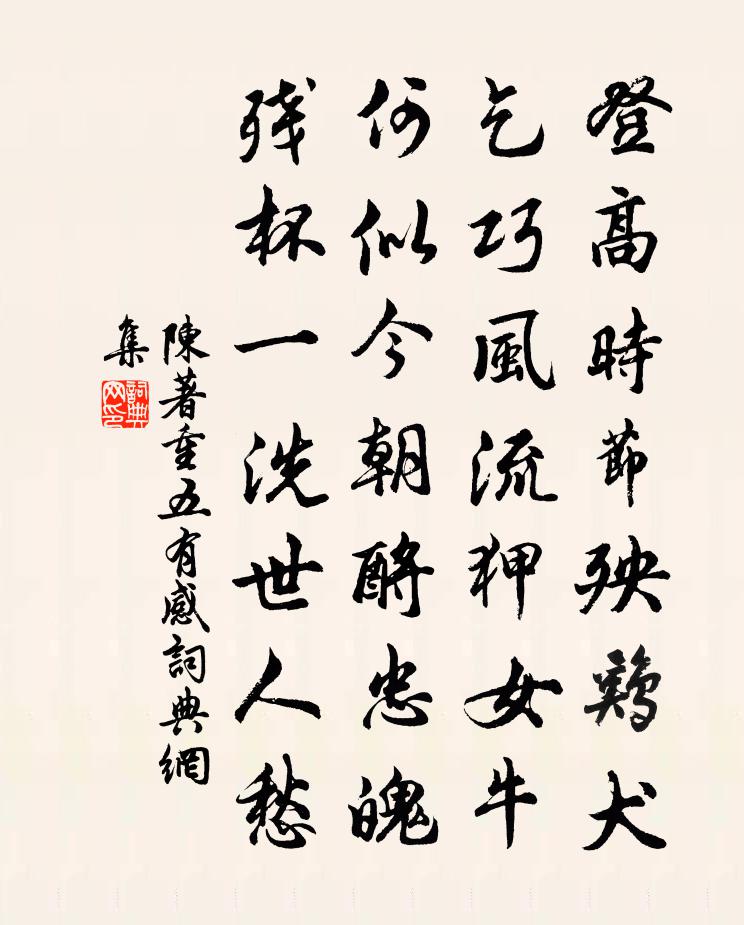 登高時節殃鷄犬
乞巧風流狎女牛
何似今朝酹忠魄
残杯一洗世人愁
陳著重五有感詞典網
集
詞典网印